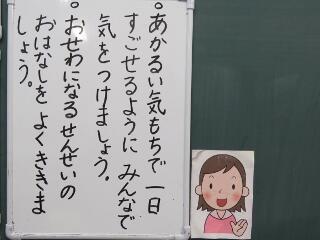 。あかるい気もちで一日
すごせるように みんなで
気をつけましょう。
。おせわになるせんせいの
おはなしを よくききま
しょう。